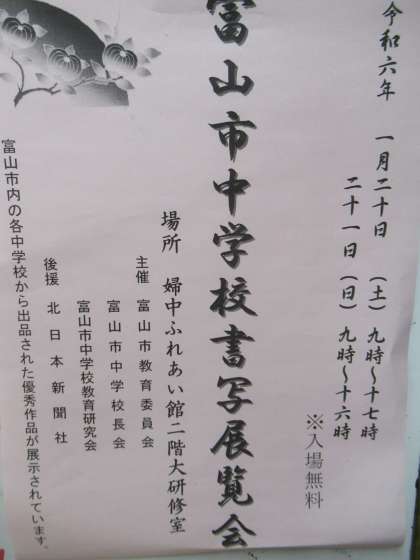 令和六年 一月二十日(土)九時~十七時
二十一日(日)九時~十六時
※入場無料
富山市中学校書写展覧会
場所 婦中ふれあい館二階大研修室
主催 富山市教育委員会
富山市中学校長会
富山市中学校教育研究会
後援 北日本新聞社
富山市内の各中学校から出品された優秀作品が展示されています。